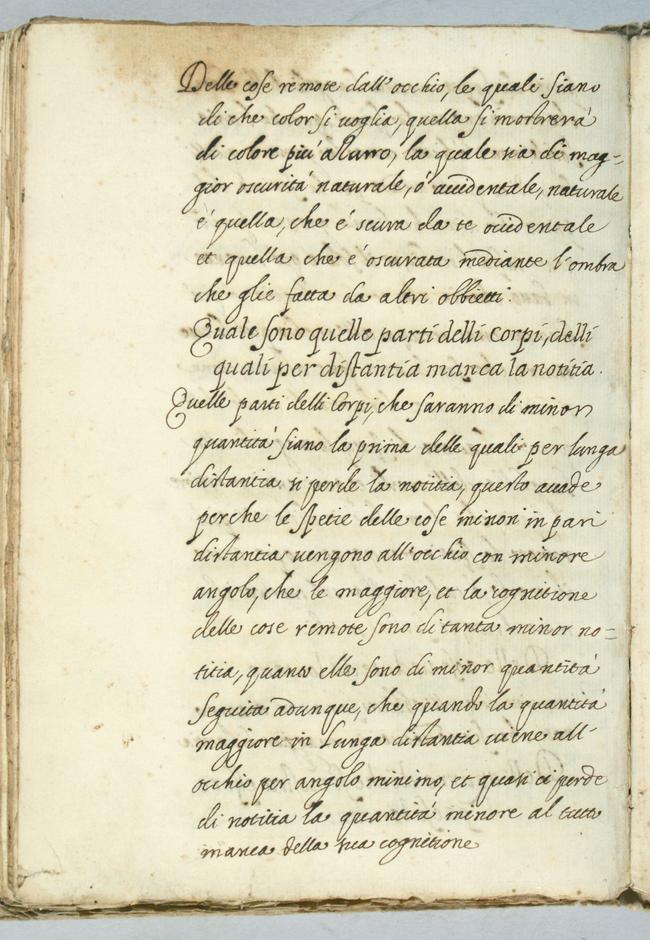 Delle cose remote dall'occhio, le quali siano
di che color si uoglia, quella si mostrerà
di colore piu' azurro, la quale sia di mag=
gior oscurità naturale, ò accidentale, naturale
è quella, che é scura da se accidentale
et quella che é oscurata mediante l'ombra
che glie fatta da altri obbietti.
Quale sono quelle parti delli corpi, delli
quali per distantia manca la notitia.
Quelle parti delli Corpi, che saranno di minor
quantità siano la prima delle quali per lunga
distantia si perde la notitia, questo accade
perche le spetie delle cose minori in pari
distantia uengono all'occhio con minore
angolo, che le maggiore, et la cognitione
delle cose remote sono di tanta minor no=
titia, quanto elle sono di minor quantità
Seguita adunque, che quando la quantità
maggiore in lunga distantia uiene all'
occhio per angolo minimo, et quasi ci perde
di notitia la quantità minore al tutto
manca della sua cognitione